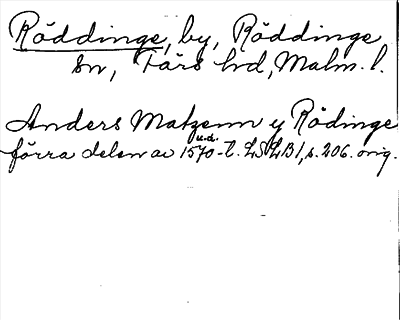 Röddinge, by, Röddinge
sn, Färs hd, Malm. l.
Anders Matzenn y Rödinge
u.d.
förra delen av 1570-t. LSLB1, s. 206. orig.